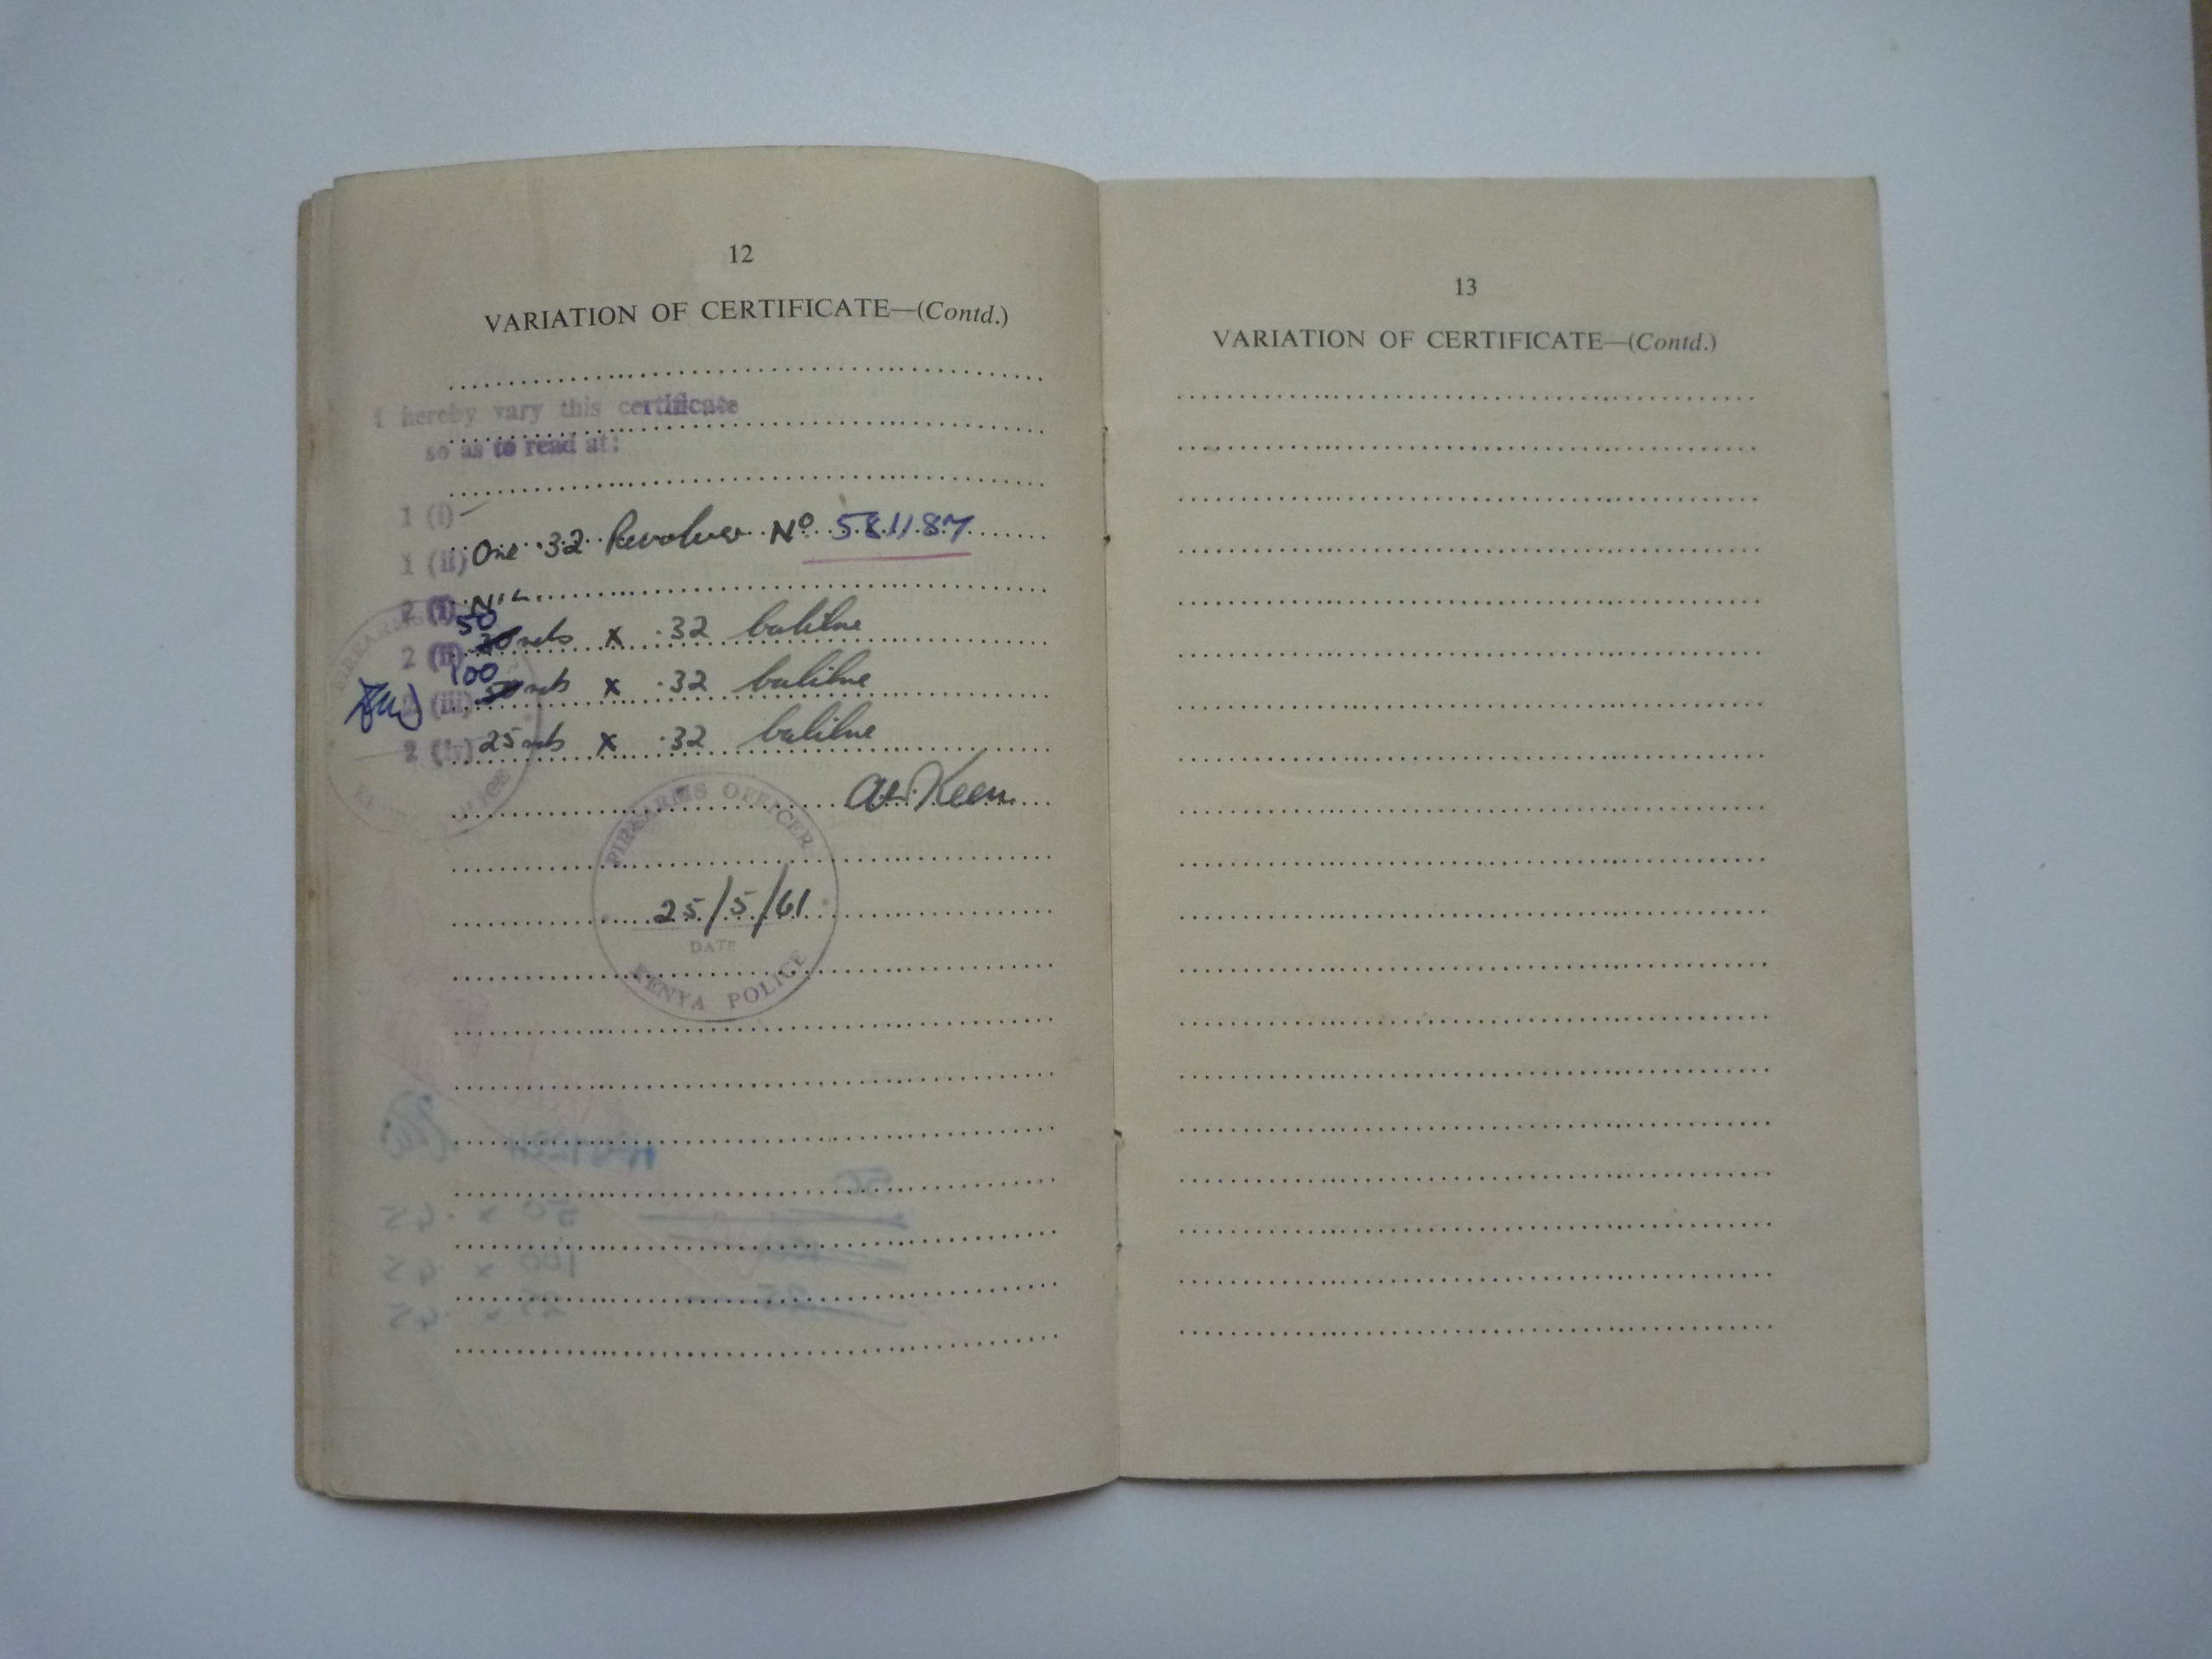 12
VARIATION OF CERTIFICATE—(Contd.)
I hereby vary this certificate
so as to read at:
1 (i) —
1 (ii) One .32 Revolver No 581187
2 (i) Nil
50
2 (ii) 20 rds x .32 calibre
100
2 (iii) 50 rds x .32 calibre
2 (iv) 25 rds x .32 calibre
Keen
FIREARMS OFFICER
25/5/61
DATE
KENYA POLICE
FIREARMS
POLICE
13
VARIATION OF CERTIFICATE—(Contd.)